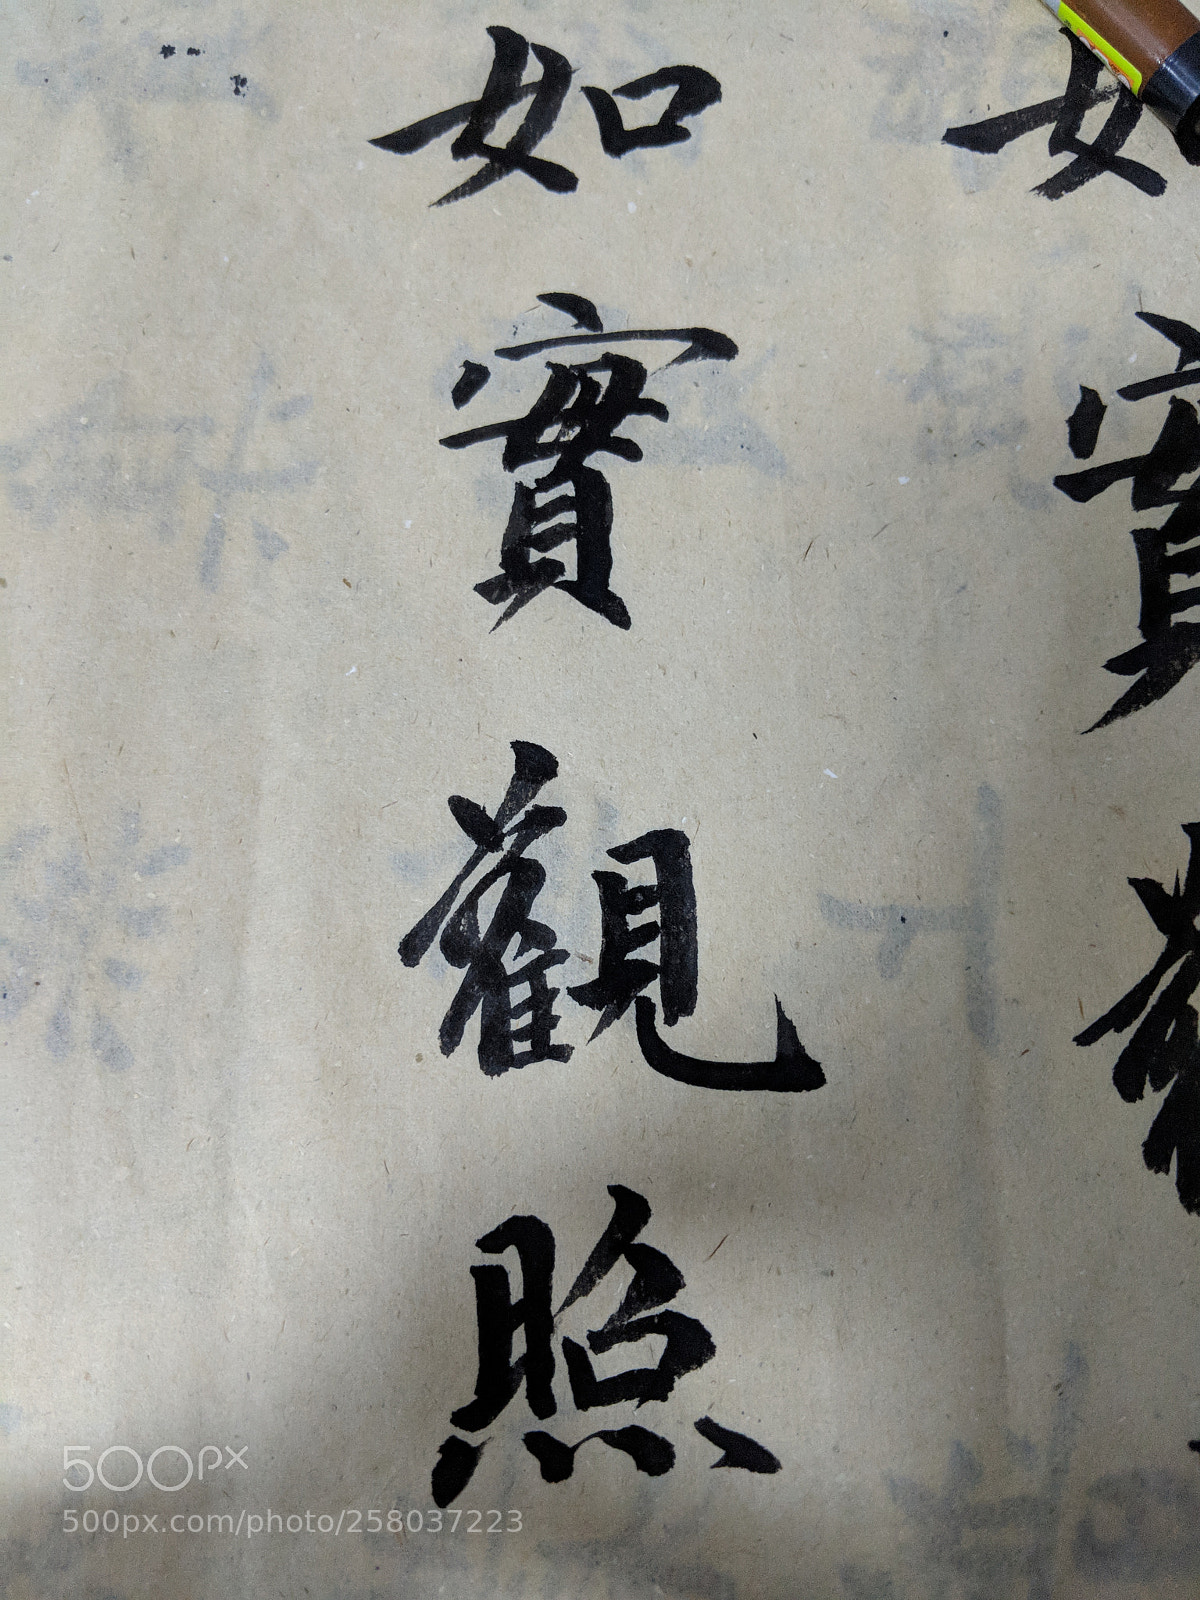 如實觀
如實觀照
500px
500px.com/photo/258037223